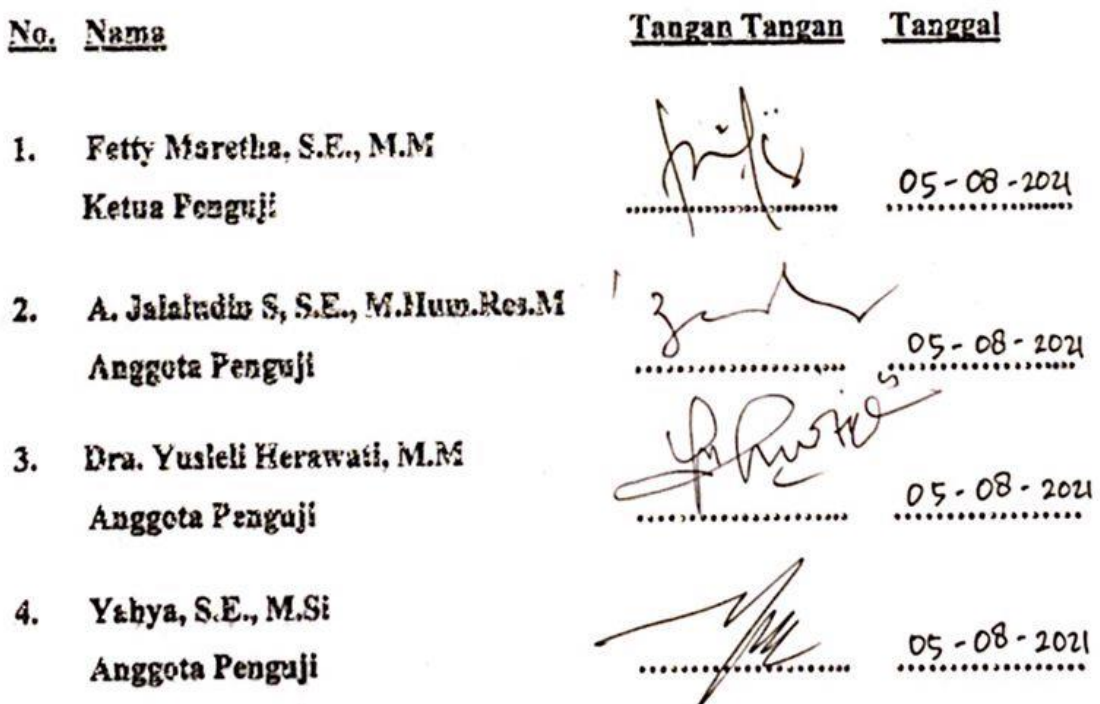 No. Nama Tangan Tangan Tanggal
1. Fetty Maretha, S.E., M.M
Ketua Penguji 05-08-2021
2. A. Jalaludin S, S.E., M.Hum.Res.M
Anggota Penguji 05-08-2021
3. Dra. Yusleli Herawati, M.M
Anggota Penguji 05-08-2021
4. Yahya, S.E., M.Si
Anggota Penguji 05-08-2021